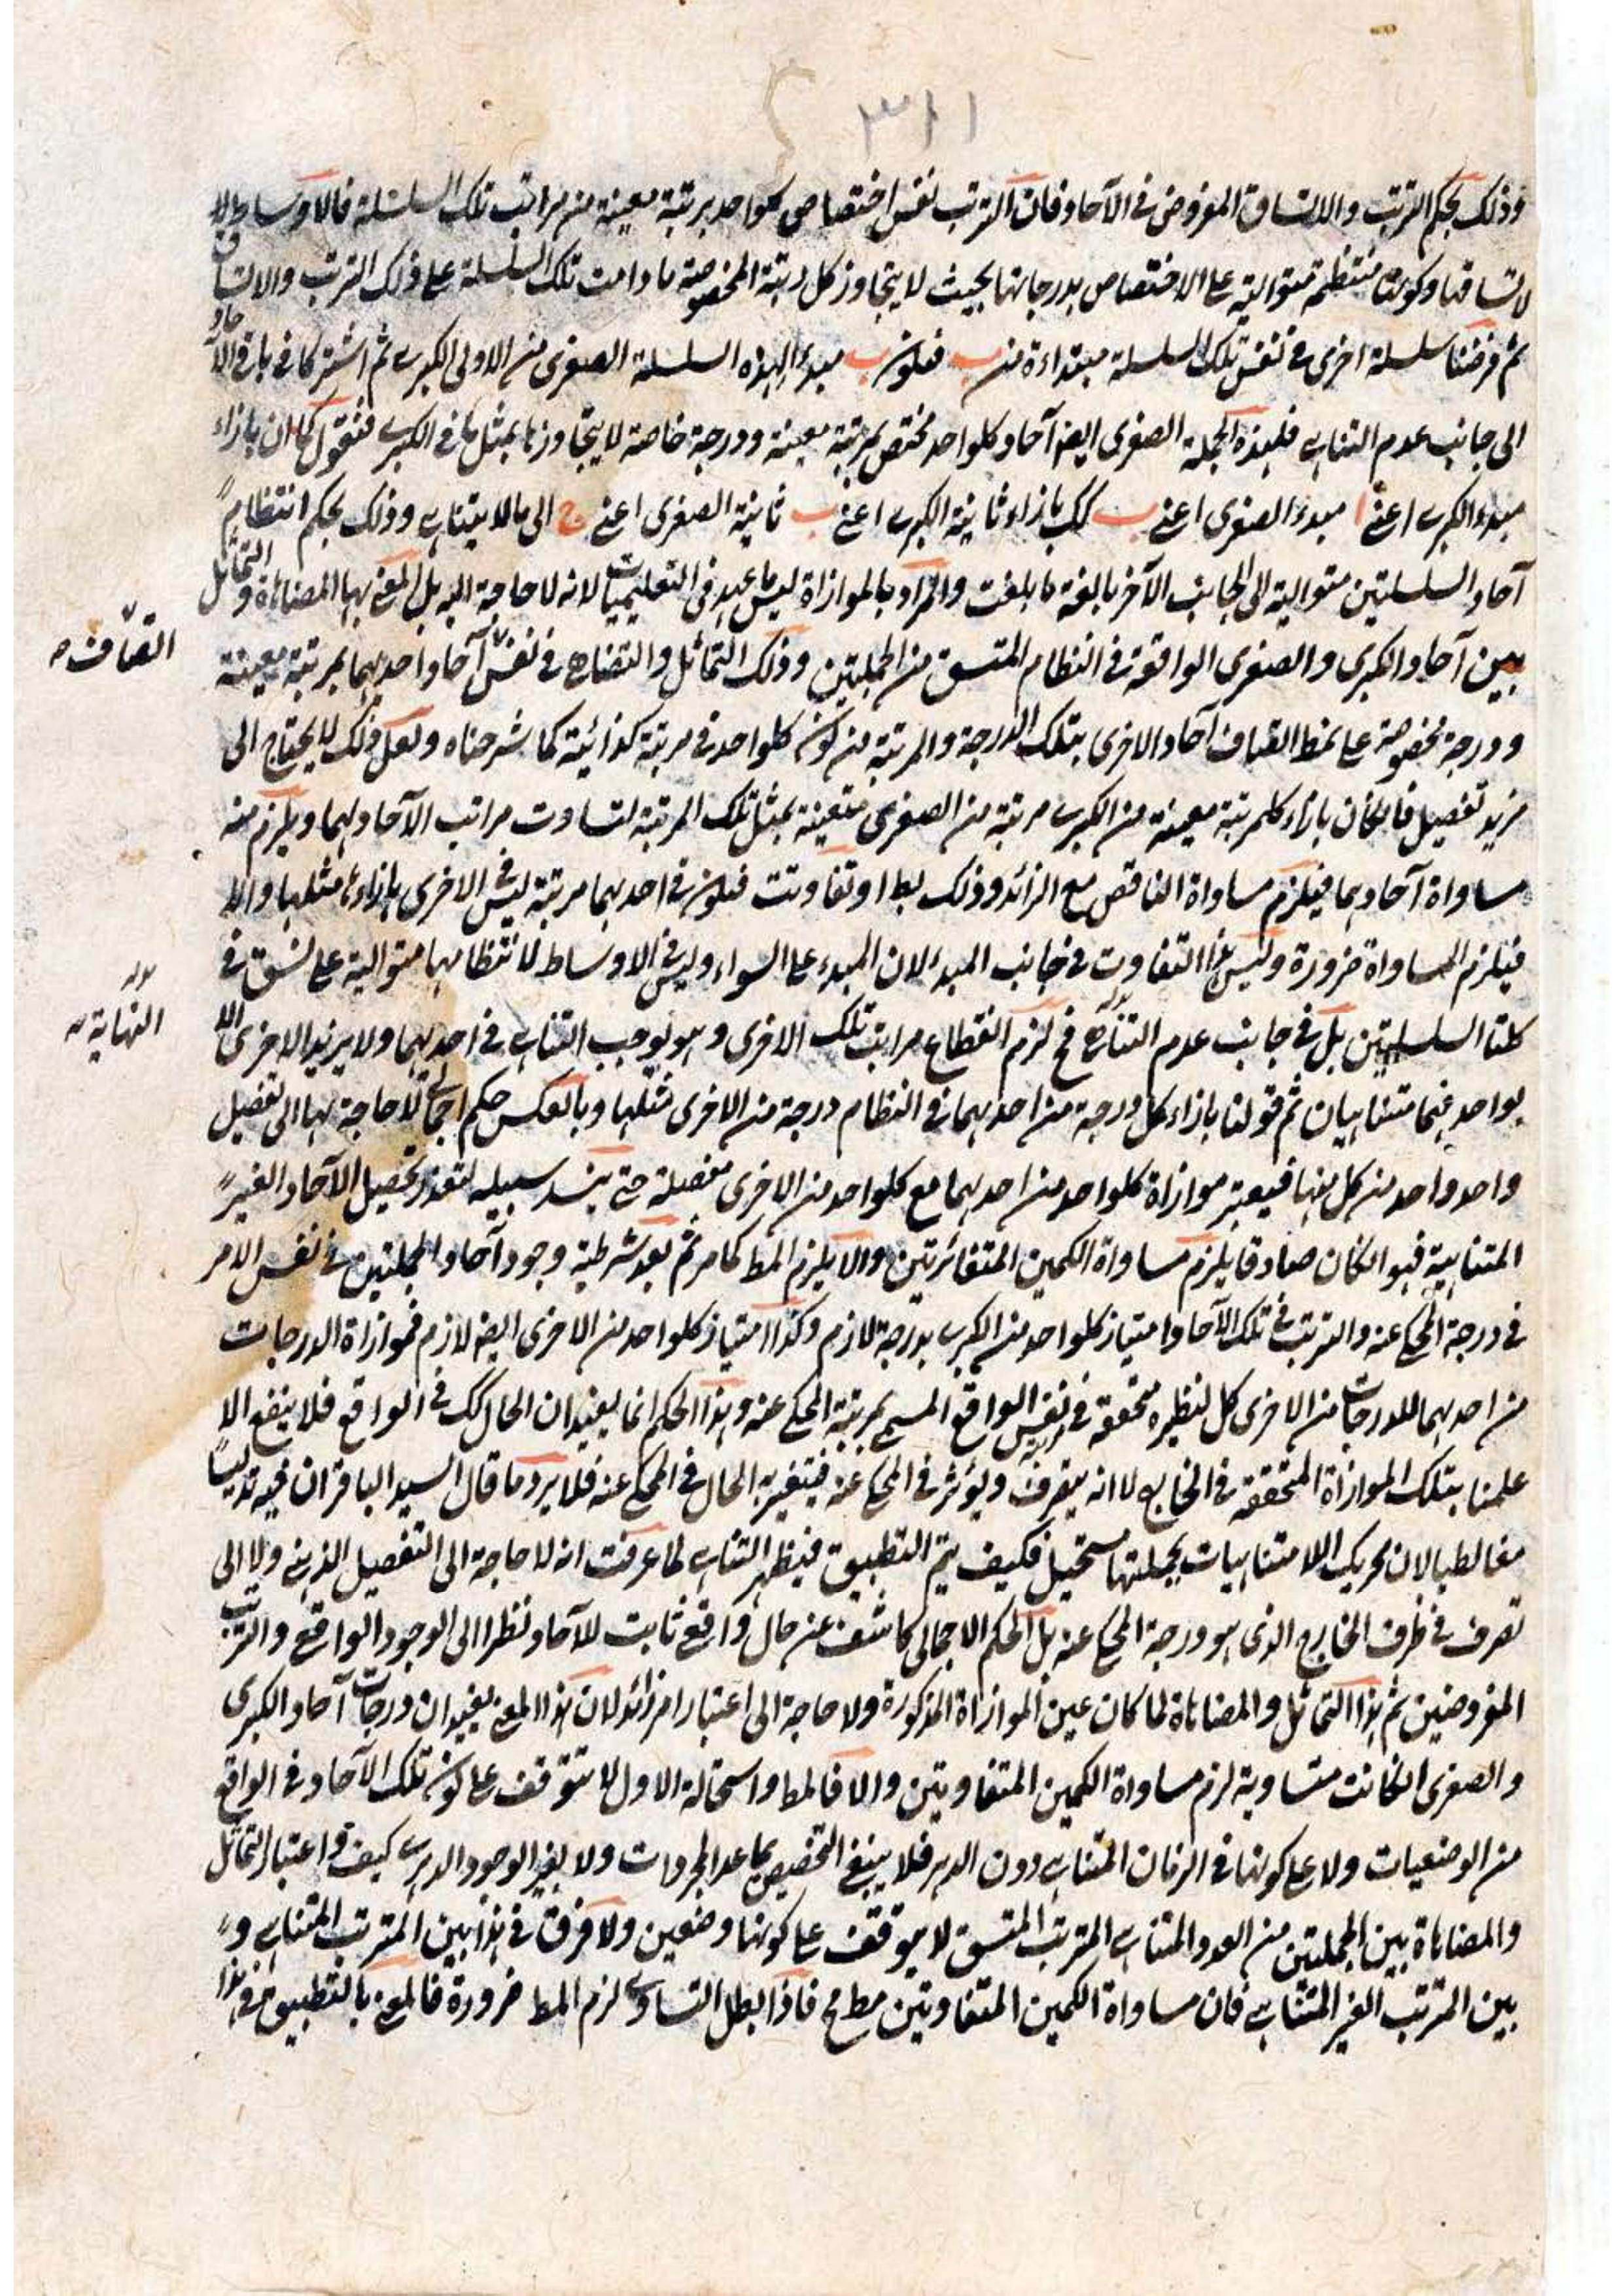 ٣١١
وذلك بحكم الترتب والاتساق المفروض في الآحاد فان الترتب نفس اختصاص كلواحد برتبة معينة من مراتب تلك السلسلة فالاوساط
لاتساقها وكونها منتظمة متوالية على الاختصاص بدرجاتها بحيث لا يتجاوز كل رتبة المخصوصة ما دامت تلك السلسلة على ذلك الترتب والاتساق
ثم فرضنا سلسلة اخرى في نفس تلك السلسلة مبتداءة من ب فيكون ب مبدء لهذه السلسلة الصغرى من الاولى الكبرى ثم اشتركا في باقي الآحاد
الى جانب عدم التناهي فلهذه الجملة الصغرى ايضا آحاد كلواحد مختص بمرتبة معينة ودرجة خاصة لا يتجاوزها بمثل ما في الكبرى فنقول كما ان بازاء
مبدء الكبرى اعني ا مبدء الصغرى اعني ب كك بازاء ثانية الكبرى اعني ب ثانية الصغرى اعني ج الى مالا يتناهى وذلك بحكم انتظام
آحاد السلسلتين متوالية الى الجانب الآخر بالغة ما بلغت والمراد بالموازاة ليس ما عهد في التعليميات لانه لا حاجة اليه بل المعنى بها المضاهاة والتماثل
بين آحاد الكبرى والصغرى الواقعة في النظام المتسق من الجملتين وذلك التماثل والتضاهي في نفس آحاد احديهما بمرتبة معينة
ودرجة مخصوصة على نمط اتصاف آحاد الاخرى بتلك الدرجة والمرتبة من كون كلواحد في مرتبة كذائية كما شرحناه ولعل ذلك لا يحتاج الى
مزيد تفصيل فان كان بازاء كل مرتبة معينة من الكبرى مرتبة من الصغرى متعينة بمثل تلك المرتبة لتساوت مراتب الآحاد لهما ويلزم منه
مساواة آحادهما فيلزم مساواة الناقص مع الزائد وذلك بط او تفاوتت فيكون في احديهما مرتبة ليس في الاخرى بازاءها مثلها والا
فيلزم المساواة ضرورة وليس هذا التفاوت في جانب المبدء لان المبدء على السواء وليس في الاوساط لانتظامهما متوالية على نسق في
كلتا السلسلتين بل في جانب عدم التناهي فح لزم انقطاع مراتب تلك الاخرى وهو يوجب التناهي في احديهما ولا يزيد الاخرى الا
بواحد فهما متناهيان ثم قولنا بازاء كل درجة من احديهما في النظام درجة من الاخرى مثلها وبالعكس حكم اجمالي لا حاجة بها الى تفصيل
واحد واحد من كل منها فيعتبر موازاة كلواحد من احديهما مع كلواحد من الاخرى مفصلة حتى ينسد سبيله لتعذر تحصيل الآحاد الغير
المتناهية فهو ان كان صادقا يلزم مساواة الكمين المتغائرتين والا يلزم المط كما مر ثم بعد شرطية وجود آحاد الجملتين في نفس الامر
في درجة المحكي عنه والترتب في تلك الآحاد وامتياز كلواحد من الكبرى بدرجة لازم وكذا امتياز كلواحد من الاخرى ايضا لازم فموازاة الدرجات
من احديهما للدرجات من الاخرى كل لنظيره متحققة في نفس الواقع المسمى بمرتبة المحكي عنه وهذا الحكم انما يفيد ان الحال كك في الواقع فلا ينفع الا
علمنا بتلك الموازاة المتحققة في الخارج لا انه يتصرف ويؤثر في المحكي عنه فيتغير به الحال في المحكي عنه فلا يرد ما قال السيد الباقر ان فيه تدليسا
مغالطيا لان تحريك اللامتناهيات بجملتها مستحيل فكيف يتم التطبيق فيظهر التناهي لما عرفت انه لا حاجة الى التفصيل الذهني ولا الى
تصرف في ظرف الخارج الذي هو درجة المحكي عنه بل الحكم الاجمالي كاشف عن حال واقع ثابت للآحاد نظرا الى الوجود الواقعي والترتب
المفروضين ثم هذا التماثل والمضاهاة لما كان عين الموازاة المذكورة ولا حاجة الى اعتبار امر زائد لان هذا المعنى يفيد ان درجات آحاد الكبرى
والصغرى ان كانت متساوية لزم مساواة الكمين المتفاوتين والا فالمط واستحالة الاول لا تتوقف على كون تلك الآحاد في الواقع
من الوضعيات ولا على كونها في الزمان المتناهي دون الدهر فلا ينبغي التخصيص بما عدا المجردات ولا بغير الوجود الدهري كيف واعتبار التماثل
والمضاهاة بين الجملتين من العدد المتناهي المترتب المتسق لا يتوقف على كونها وضعين ولا فرق في هذا بين المترتب المتناهي و
بين المترتب الغير المتناهي فان مساواة الكمين المتفاوتين مطرح فاذا بطل التساوي لزم المط ضرورة فالمعنى بالتطبيق في هذا
اتصاف
النهاية